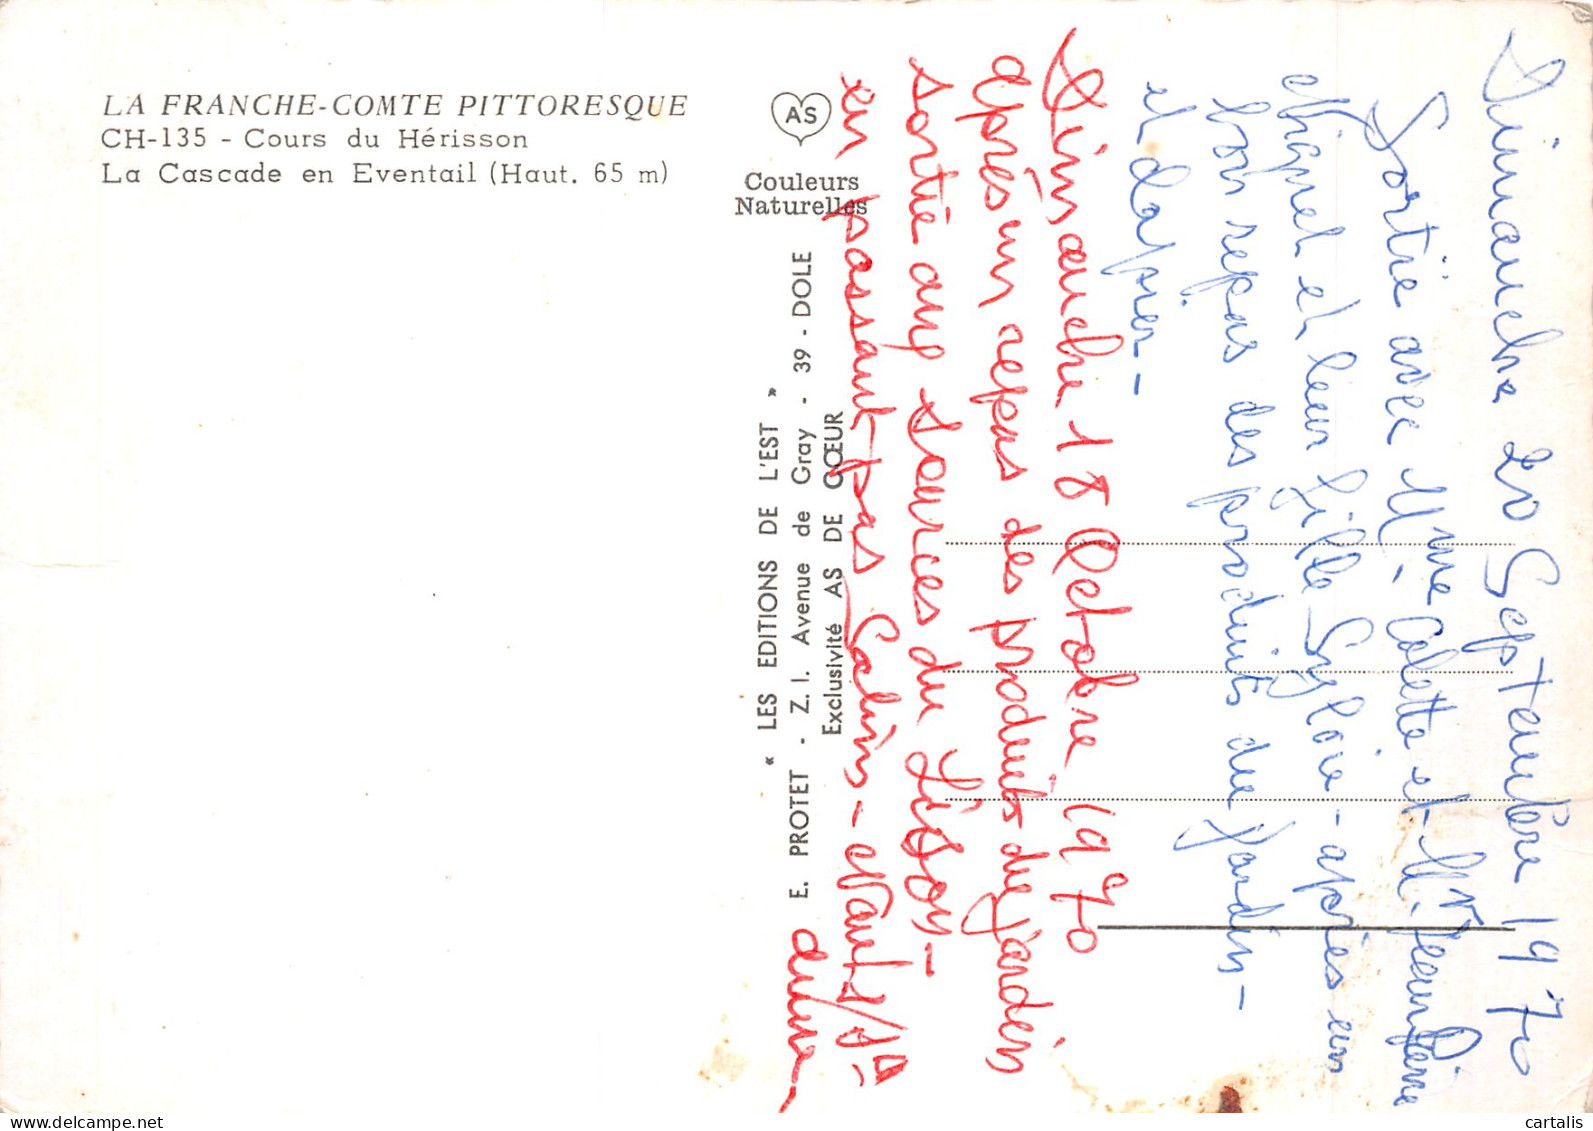 LA FRANCHE-COMTE PITTORESQUE
CH-135 - Cours du Hérisson
La Cascade en Eventail (Haut. 65 m)
AS
Couleurs
Naturelles
« LES EDITIONS DE L'EST »
E. PROTET - Z. I. Avenue de Gray - 39 - DOLE
Exclusivité AS DE CŒUR
Dimanche 20 Septembre 1970
Sortie avec Mme Colette et Mr
et leur fille Sylvie - après un
bon repas des produits du jardin -
et
Dimanche 18 Octobre 1970
après un repas des produits du jardin
sortie aux sources du Lison -
en passant pas Salins -
cartalis
delcampe.net